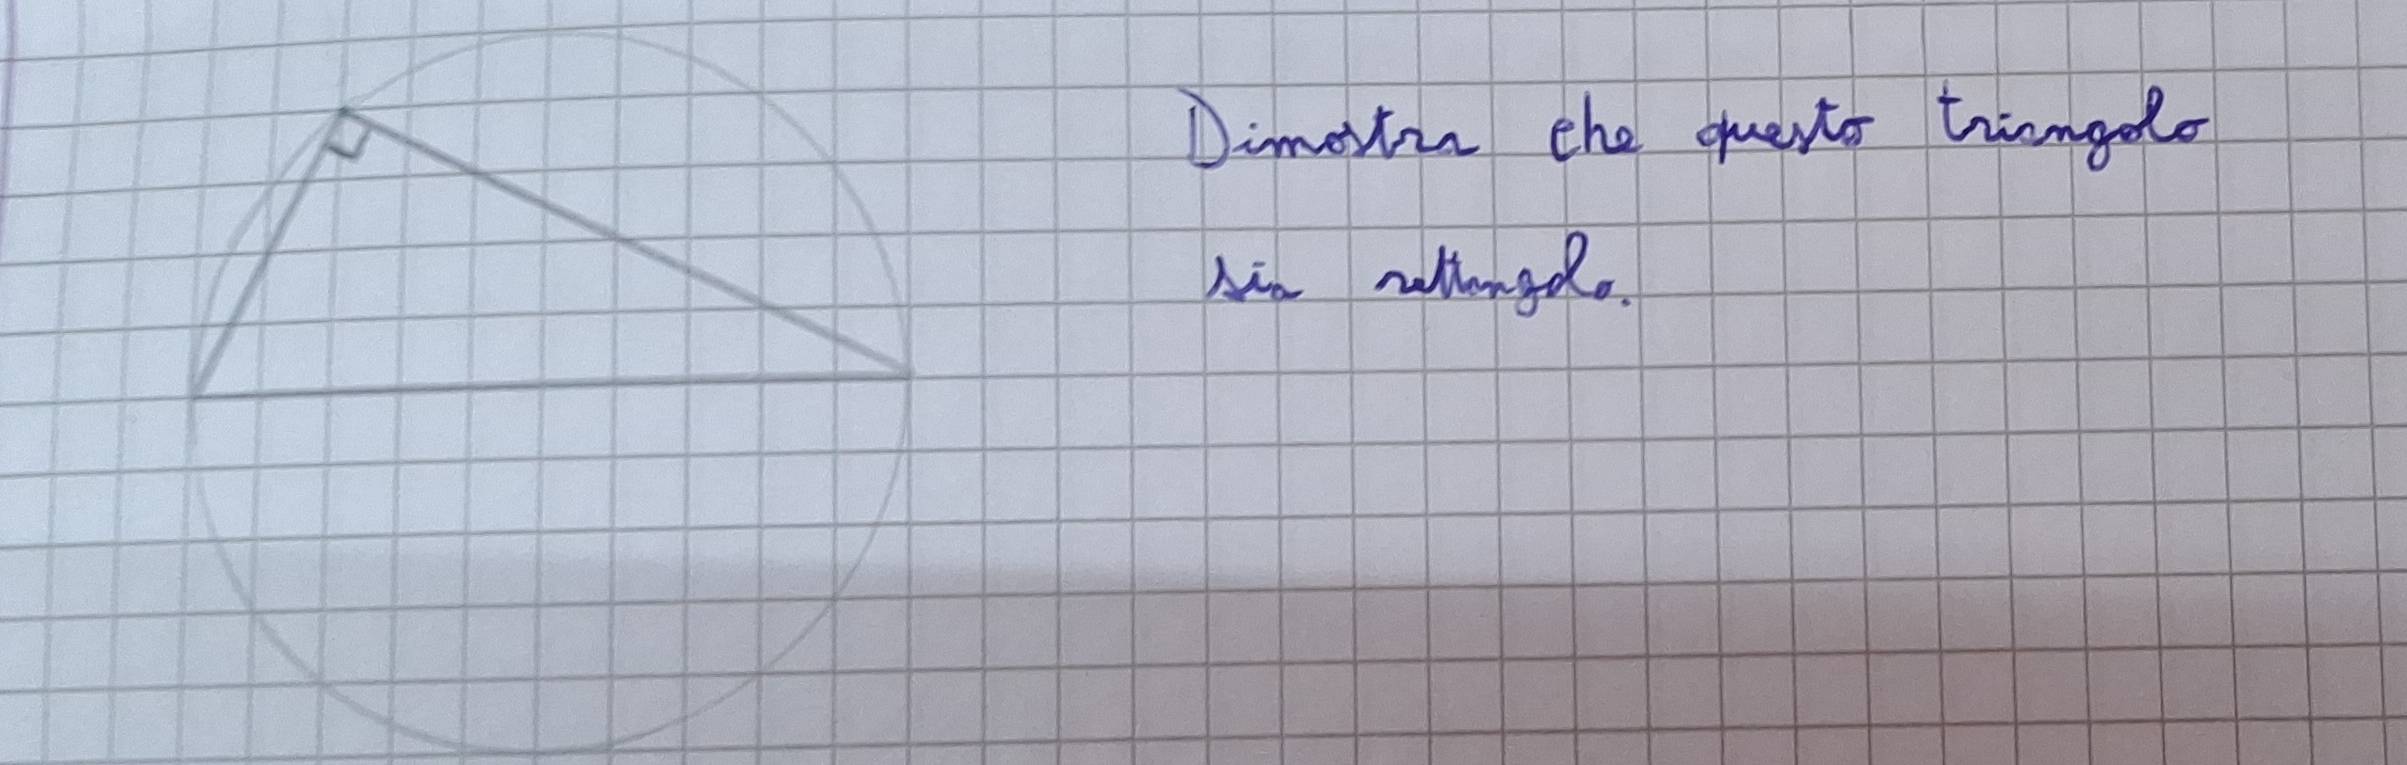 Dimostra che questo triangolo
sia rettangolo.